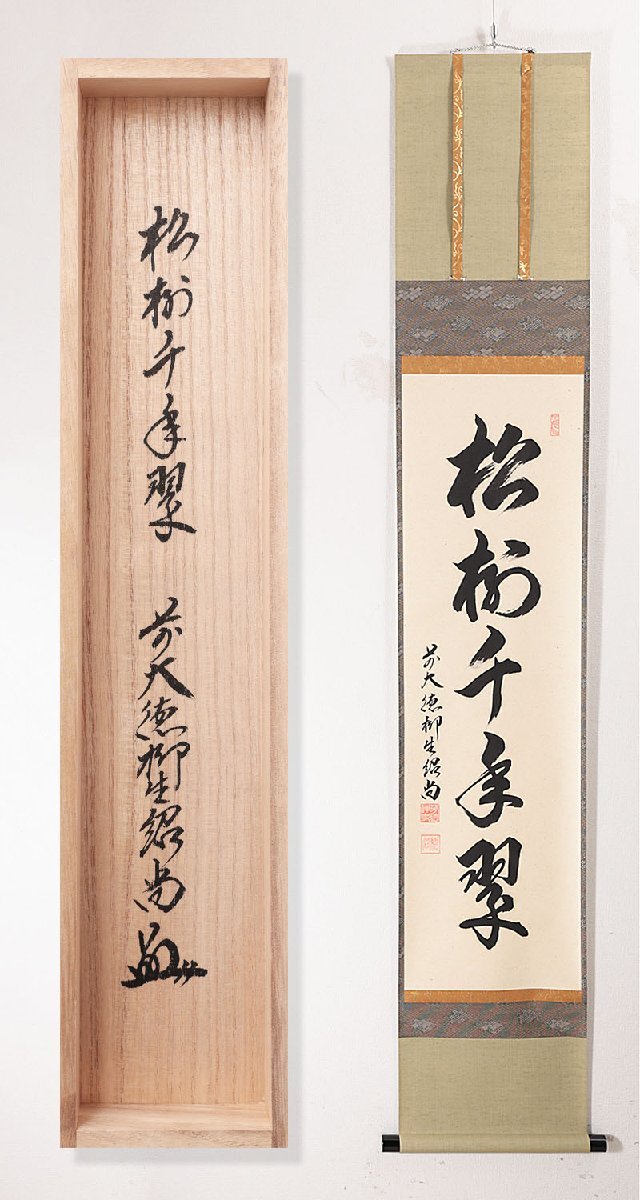 松樹千年翠
前大徳柳生紹尚
松樹千年翠 前大徳柳生紹尚